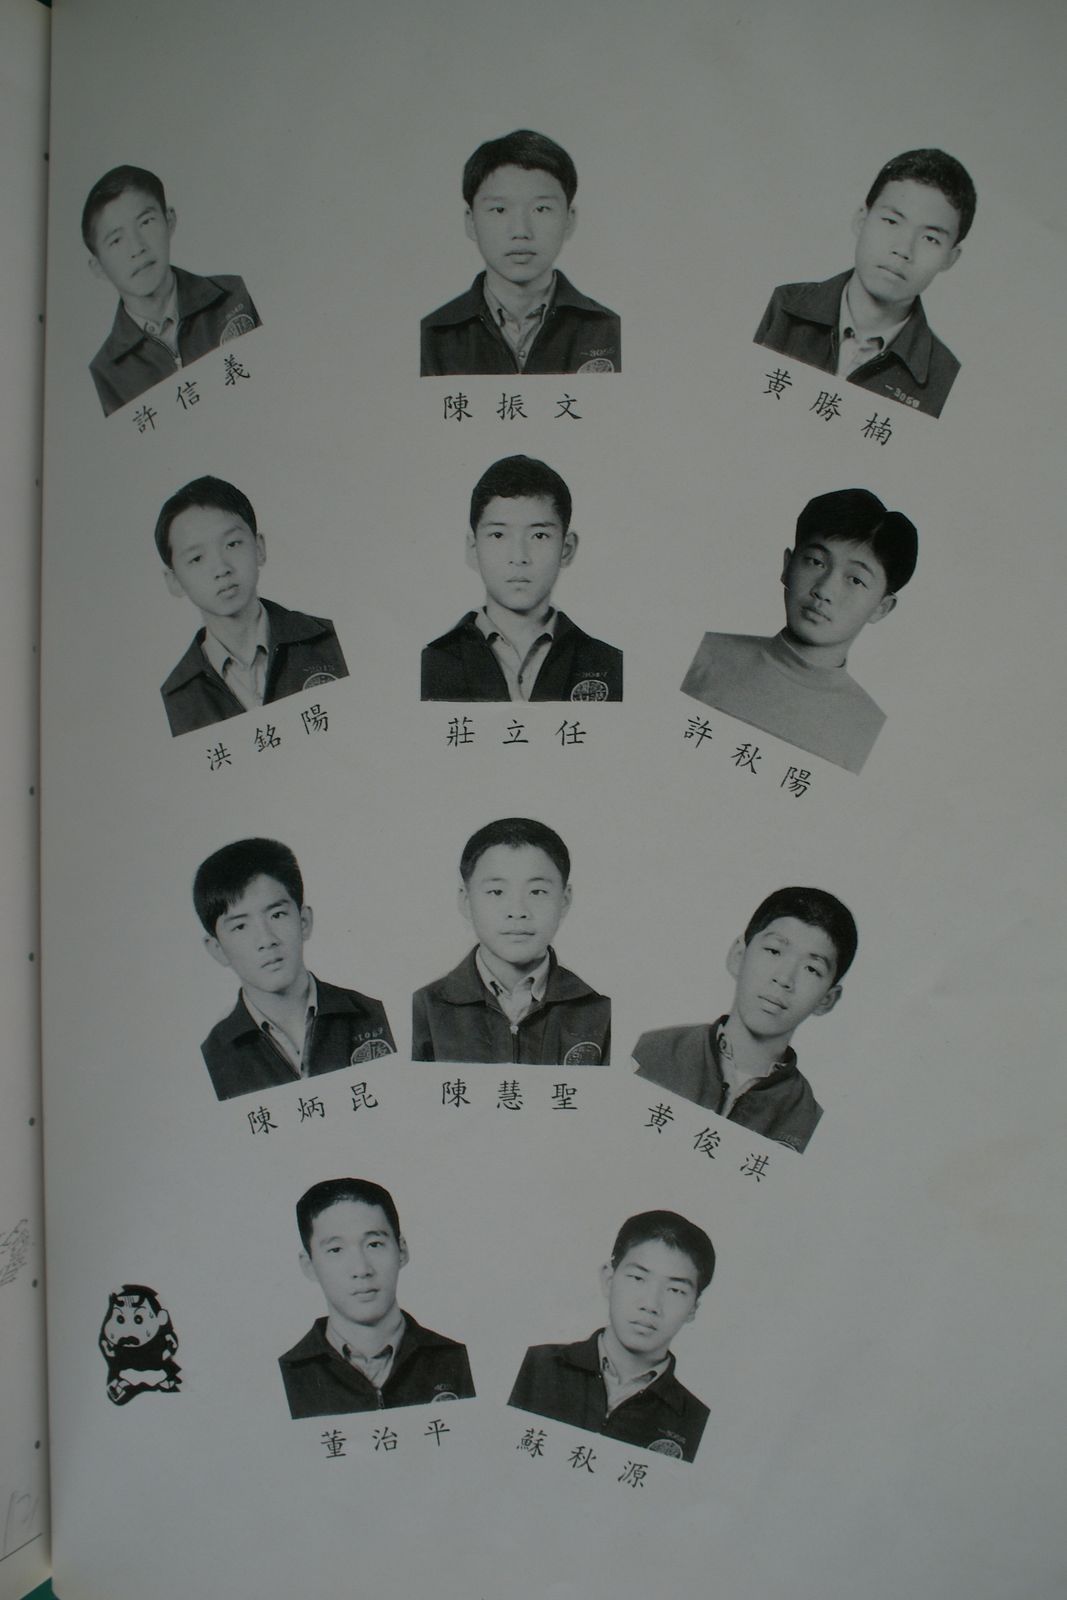 許信義
陳振文
黃勝楠
洪銘陽
莊立任
許秋陽
陳炳昆
陳慧聖
黃俊淇
董治平
蘇秋源